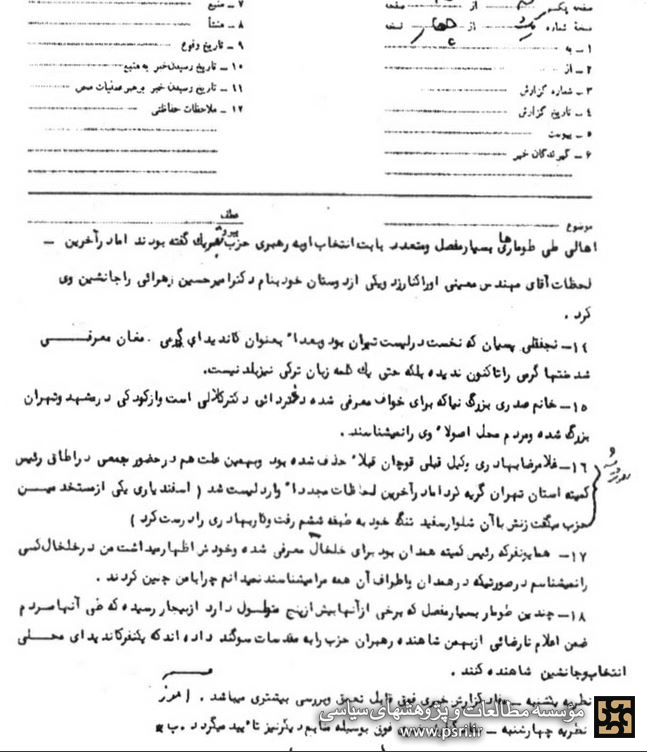 صفحه یکم از صفحه
نسخهٔ شماره از چهار نسخه
۱ ـ به
۲ ـ از
۳ ـ شماره گزارش
۴ ـ تاریخ گزارش
۵ ـ پیوست
۶ ـ گیرندگان خبر
۷ ـ منبع
۸ ـ منشأ
۹ ـ تاریخ وقوع
۱۰ ـ تاریخ رسیدن خبر به منبع
۱۱ ـ تاریخ رسیدن خبر برهبر عملیات
۱۲ ـ ملاحظات حفاظتی
موضوع
عطف
پیرو
اهالی طی طومارهای بسیار مفصل ومتعدد بابت انتخاب او به رهبری حزب تبریک گفته بودند اما درآخرین ـ
لحظات آقای مهندس معینی اوراکنارزد ویکی ازدوستان خود بنام دکترامیرحسین زهرائی راجانشین وی
کرد .
۱۴ـ نجفقلی پسیان که نخست درلیست تهران بود وبعدا" بعنوان کاندیدای گرمی . مغان معرفی
شد نه‌تنها گرمی راتاکنون ندیده بلکه حتی یك کلمه زبان ترکی نیزبلد نیست.
۱۵ـ خانم صدری بزرگ نیاکه برای خواف معرفی شده دختردائی دکترکلالی است وازکودکی درمشهد وتهران
بزرگ شده ومردم محل اصولا" وی رانمیشناسند .
۱۶ـ غلامرضا بهادری وکیل قبلی قوچان قبلا" حذف شده بود وبهمین علت هم درحضور جمعی دراطاق رئیس
کمیته استان تهران گریه کرد اما درآخرین لحظات مجددا" وارد لیست شد ( اسفندیاری یکی ازمستخدمین
حزب میگفت زنش باآن شلوارسفید تنگ خود به طبقه ششم رفت وکاربهادری رادرست کرد )
۱۷ـ همایونفرکه رئیس کمیته همدان بود برای خلخال معرفی شده وخودش اظهارمیداشت من درخلخال کسی
رانمیشناسم درصورتیکه درهمدان واطراف آن همه مرامیشناسند نمیدانم چرابامن چنین کردند .
۱۸ـ چندین طومار بسیارمفصل که برخی ازآنها بیش ازپنج متر طول دارد ازبیجار رسیده که طی آنها مردم
ضمن اعلام نارضائی ازبهمن شاهنده رهبران حزب را به مقدسات سوگند داده اند که یکنفرکاندیدای محلی
انتخاب وجانشین شاهنده کنند .
نظریه یکشنبه ـ مفاد گزارش خبری فوق قابل تعمق وبررسی بیشتری میباشد .
نظریه چهارشنبه ـ فوق بوسیله منابع دیگرنیز تائید میگردد .
موسسه مطالعات و پژوهشهای سیاسی
www.psri.ir